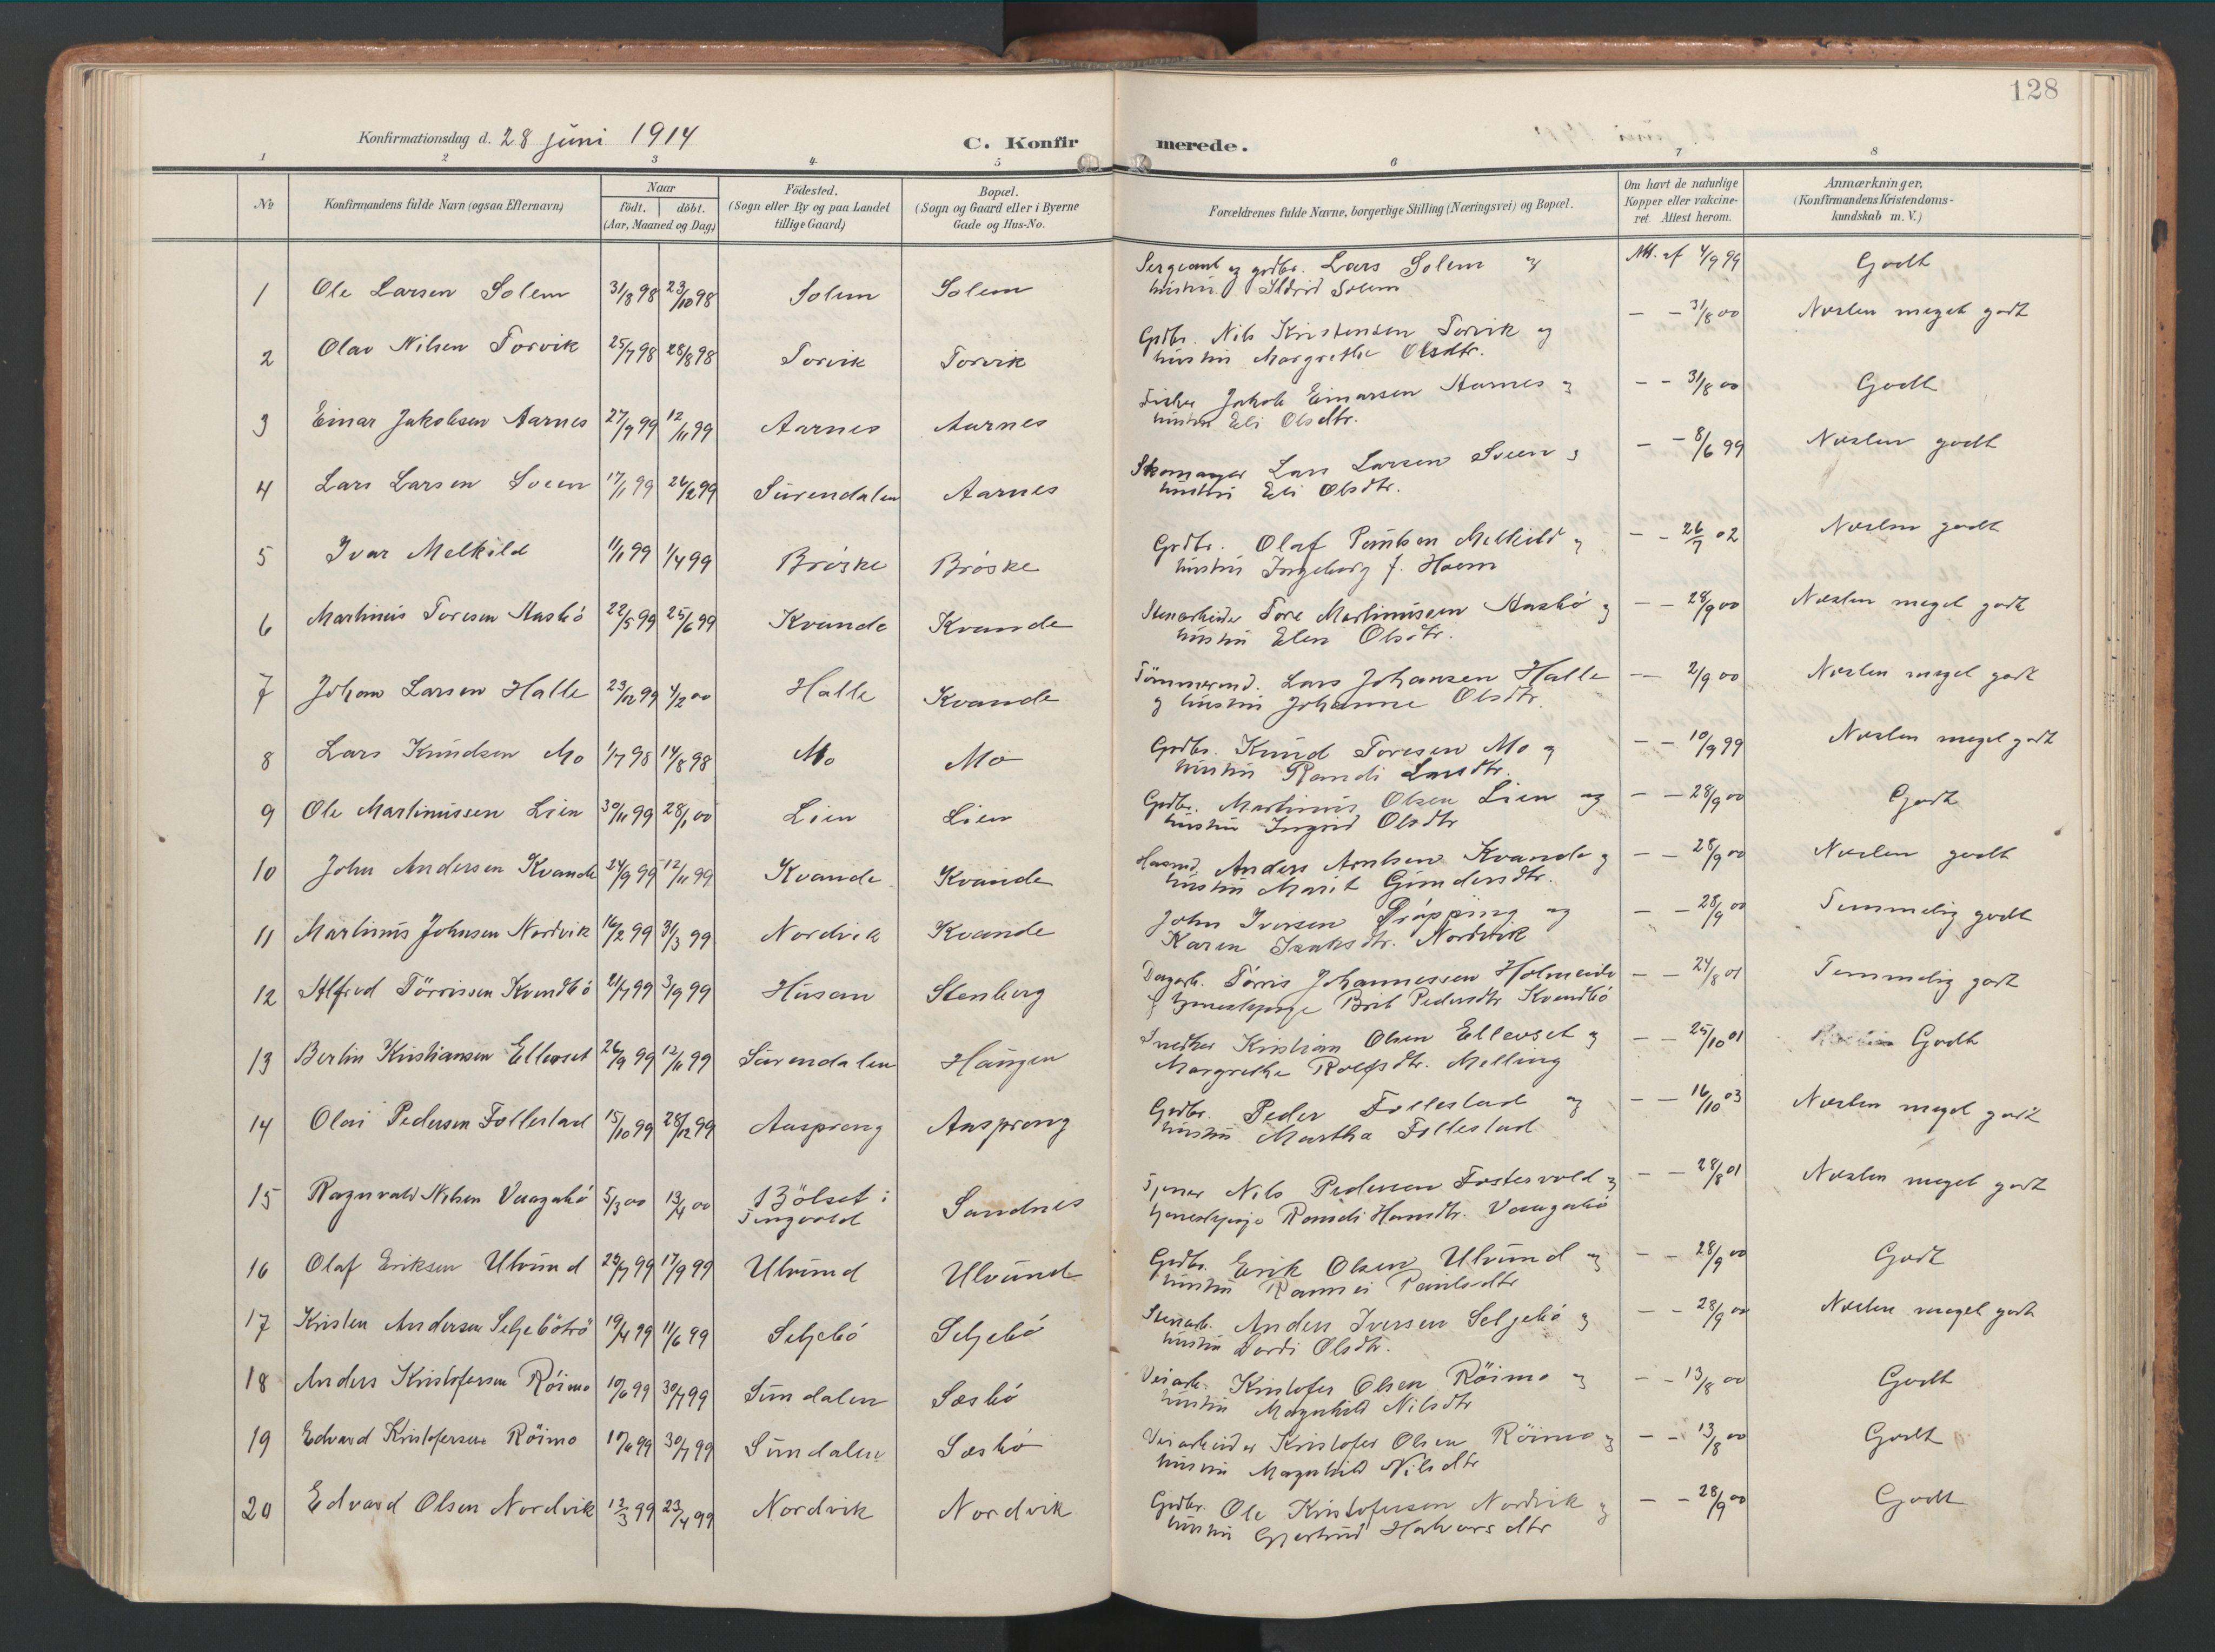 128
Konfirmationsdag d. 28 juni 1914
C. Konfirmerede.
1 2 3 4 5 6 7 8
No
Konfirmandens fulde Navn (ogsaa Efternavn)
Naar
født. døbt.
(Aar, Maaned og Dag)
Fødested.
(Sogn eller By og paa Landet
tillige Gaard)
Bopæl.
(Sogn og Gaard eller i Byerne
Gade og Hus-No.
Forældrenes fulde Navne, borgerlige Stilling (Næringsvei) og Bopæl.
Om havt de naturlige
Kopper eller vakcine-
ret. Attest herom.
Anmærkninger,
(Konfirmandens Kristendoms-
kundskab m. V.)
1 Ole Larsen Solem 31/8 98 23/10 98 Solem Solem Sergeant og grdbr. Lars Solem og Att. af 4/9 99 Godt
hustru Sldrid Solem
2 Olav Nilsen Torvik 25/7 98 28/8 98 Torvik Torvik Grdbr. Nils Kristensen Torvik og — — 31/8 00 Næsten meget godt
hustru Margrethe Olsdtr.
3 Einar Jakobsen Aarnes 27/9 99 12/11 99 Aarnes Aarnes Fisker Jakob Einarsen Aarnes og — — 31/8 00 Godt
hustru Eli Olsdtr.
4 Lars Larsen Sveen 17/1 99 26/2 99 Surendalen Aarnes Skomager Lars Larsen Sveen og — — 8/6 99 Næsten godt
hustru Eli Olsdtr.
5 Ivar Melkild 11/1 99 1/4 99 Brøske Brøske Grdbr. Olaf Paulsen Melkild og — — 26/7 02 Næsten godt
hustru Ingeborg f. Hoem
6 Martinus Toresen Aasbø 22/5 99 25/6 99 Kvande Kvande Stenarbeider Tore Martinussen Aasbø og — — 28/9 00 Næsten meget godt
hustru Elen Olsdtr.
7 Johan Larsen Halle 23/12 99 4/2 00 Halle Kvande Tømmermd. Lars Johansen Halle — — 2/9 00 Næsten meget godt
og hustru Johanne Olsdtr.
8 Lars Knudsen Mo 1/7 98 14/8 98 Mo Mo Grdbr. Knud Toresen Mo og — — 10/9 99 Næsten meget godt
hustru Randi Larsdtr.
9 Ole Martinussen Lien 30/11 99 28/1 00 Lien Lien Grdbr. Martinus Olsen Lien og — — 28/9 00 Godt
hustru Ingrid Olsdtr
10 John Andersen Kvande 24/9 99 12/11 99 Kvande Kvande Anders Arntsen Kvande og — — 28/9 00 Næsten godt
hustru Marit Gundersdtr.
11 Martinus Johnsen Nordvik 16/2 99 31/3 99 Nordvik Kvande John Iversen Drøpping og — — 28/9 00 Temmelig godt
Karen Isaksdtr. Nordvik
12 Alfred Tørrissen Kvendbø 21/7 99 3/9 99 Husan Stenberg Dagarb. Tørris Johannessen Holmeide — — 24/8 01 Temmelig godt
Brit Pedersdtr Kvendbø
13 Berlin Kristiansen Ellevset 26/9 99 12/11 99 Surendalen Haugen Snedker Kristian Olsen Ellevset og — — 25/10 01 Godt
Margrethe Rolfsdtr. Melling
14 Olai Pedersen Follestad 15/10 99 28/12 99 Aasprong Aasprong Grdbr. Peder Follestad og — — 16/10 03 Næsten meget godt
hustru Martha Follestad
15 Ragnvald Nilsen Vaagabø 5/3 00 13/4 00 Bølset i Sandnes Tjener Nils Pedersen Fostervold og — — 28/8 01 Næsten meget godt
Tingvold Randi Hansdtr. Vaagabø
16 Olaf Eriksen Ulvund 23/7 99 17/9 99 Ulvund Ulvund Grdbr. Erik Olsen Ulvund og — — 28/9 00 Godt
hustru Rannei Paulsdtr
17 Kristen Andersen Seljebøtrø 19/4 99 11/6 99 Seljebø Seljebø Stenarb. Anders Iversen Seljebø og — — 28/9 00 Næsten meget godt
hustru Dordi Olsdtr.
18 Anders Kristofersen Røimo 10/6 99 30/7 99 Sundalen Sæsbø Veiarb. Kristofer Olsen Røimo og — — 13/8 00 Godt
hustru Magnhild Nilsdtr
19 Edvard Kristofersen Røimo 10/6 99 30/7 99 Sundalen Sæsbø Veiarbeider Kristofer Olsen Røimo og — — 13/8 00 Godt
hustru Magnhild Nilsdtr
20 Edvard Olsen Nordvik 12/3 99 23/4 99 Nordvik Nordvik Grdbr. Ole Kristofersen Nordvik og — — 28/9 00 Godt
hustru Gjertrud Halvorsdtr